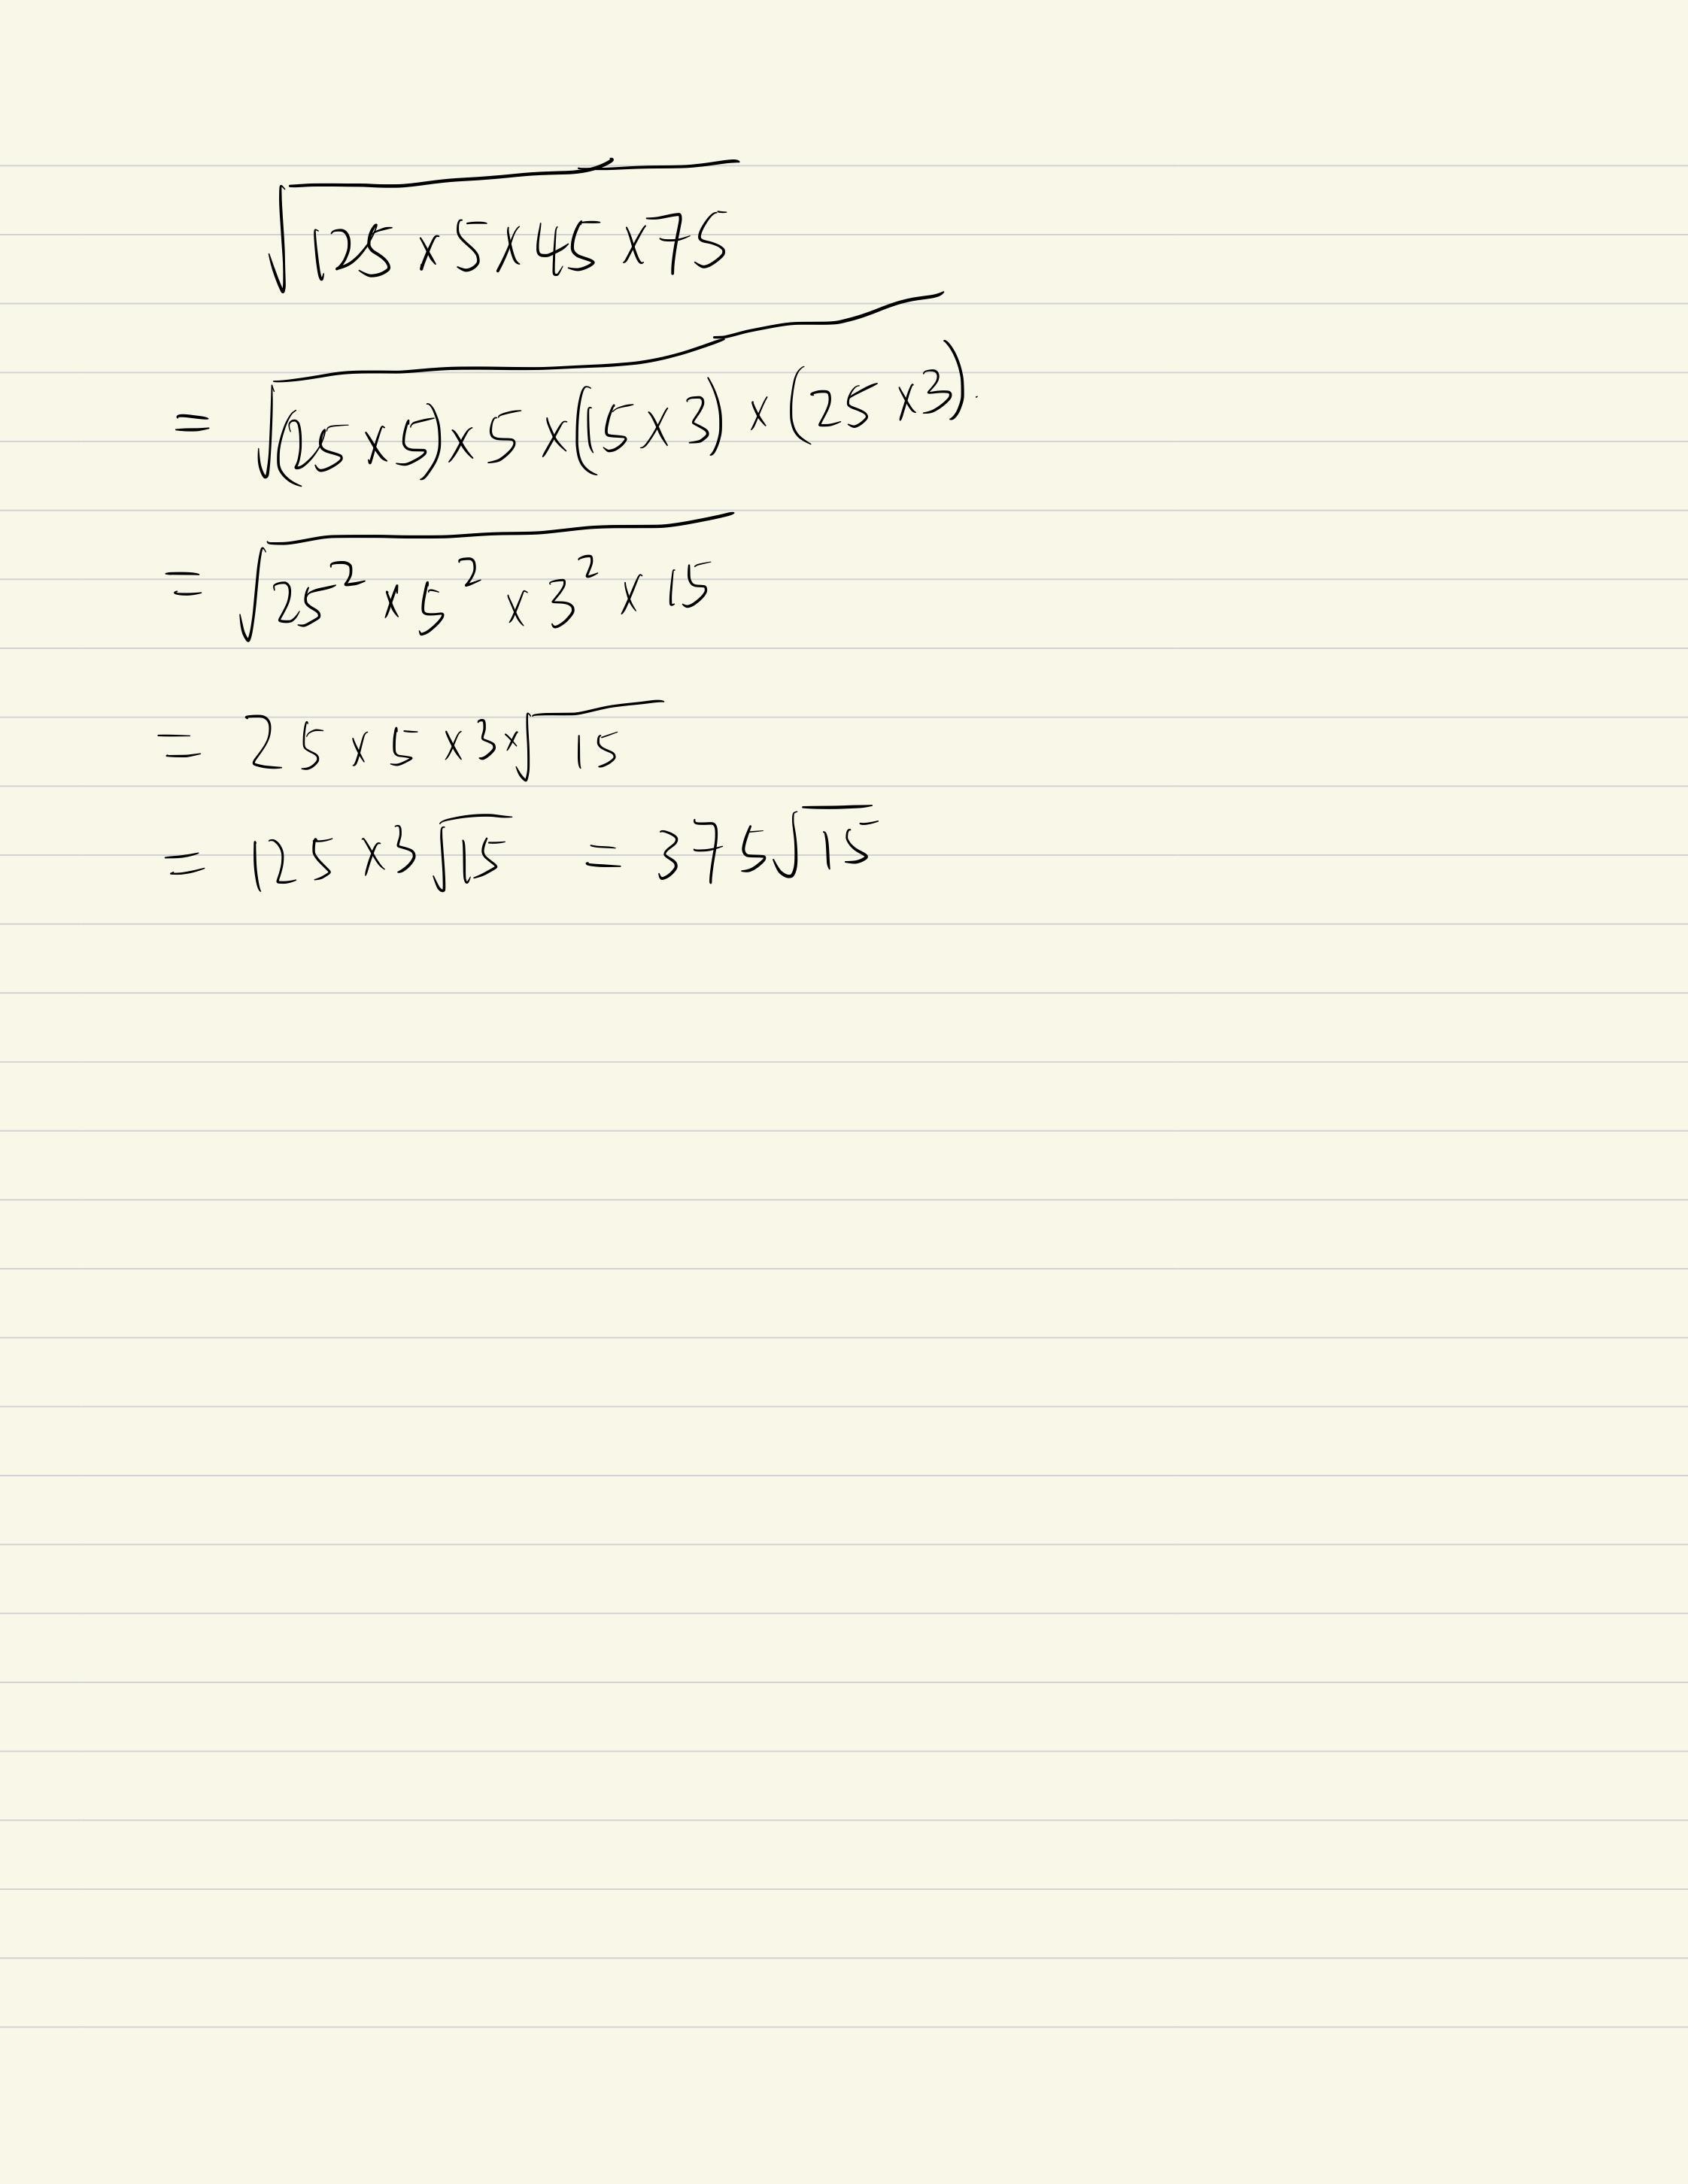 √(125 × 5 × 45 × 75)
= √((25 × 5) × 5 × (15 × 3) × (25 × 3))
= √(25² × 5² × 3² × 15)
= 25 × 5 × 3 × √15
= 125 × 3√15 = 375√15